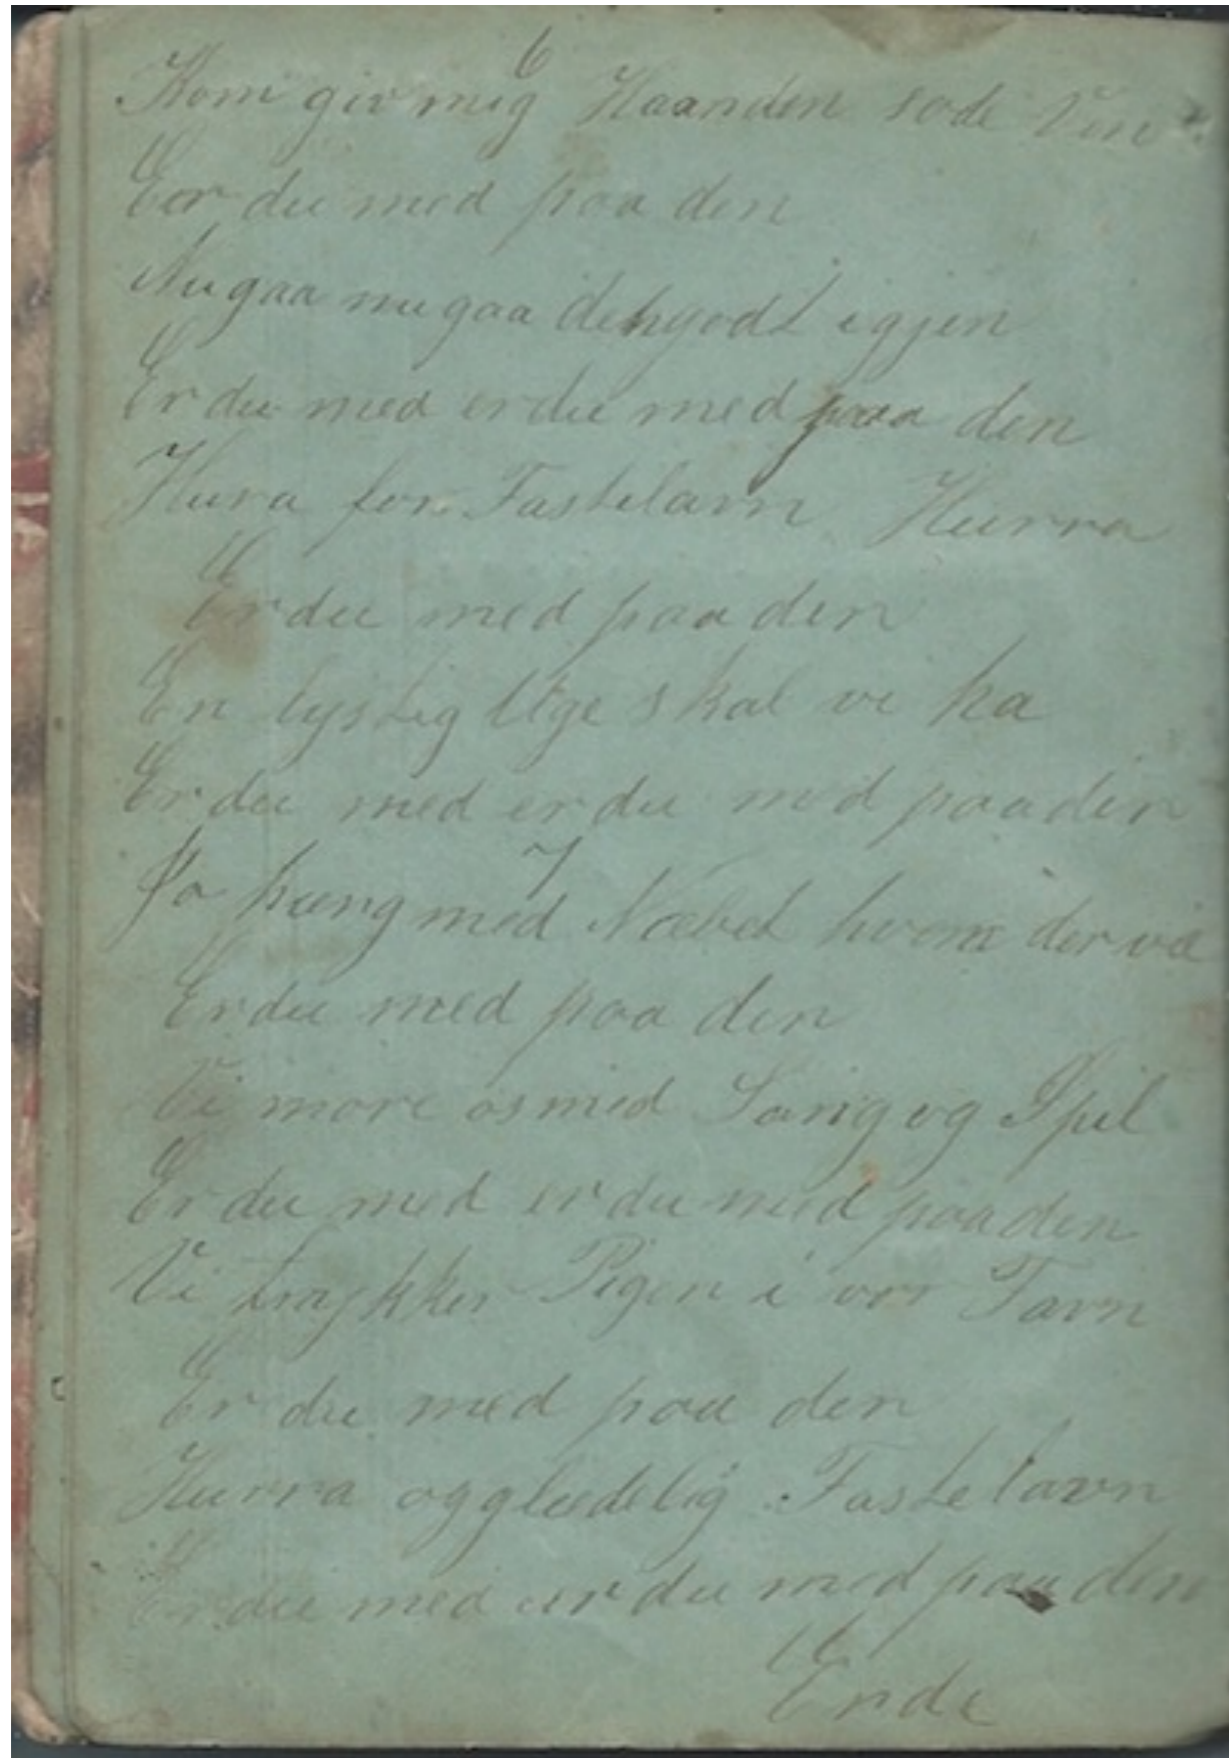 6
Kom giv mig Haanden søde Ven
Er du med paa den
Nu gaa nu gaa det godt igjen
Er du med er du med paa den
Hura for Fastelavn Hurra
Er du med paa den
En lystig Uge skal vi ha
Er du med er du med paa den
7
Pa hæng med Næbet hvem der vil
Er du med paa den
Vi more os med Sang og Spil
Er du med er du med paa den
Vi trykker Pigen i vor Favn
Er du med paa den
Hurra og glædelig Fastelavn
Er du med er du med paa den
Ende